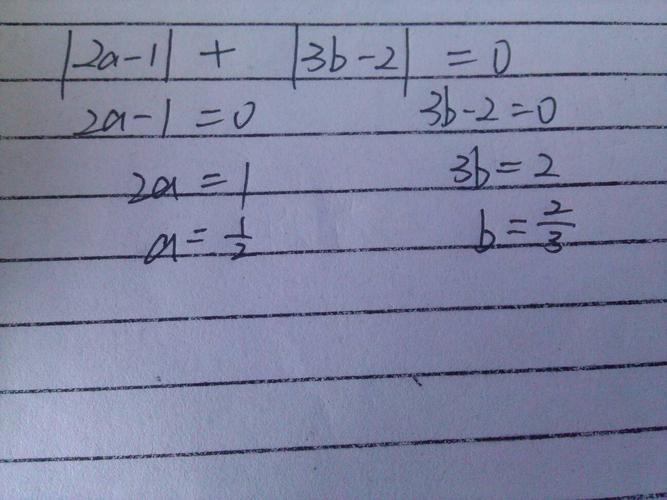 |2a-1| + |3b-2| = 0
2a-1=0 3b-2=0
2a=1 3b=2
a=1/2 b=2/3